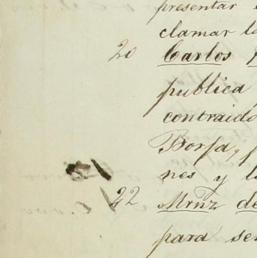 presentar
clamar
20 Carlos
publica
contraido
Borja,
nes y
22 Mrnz de
para